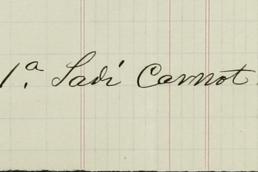 1.ª Sadí Carnot.